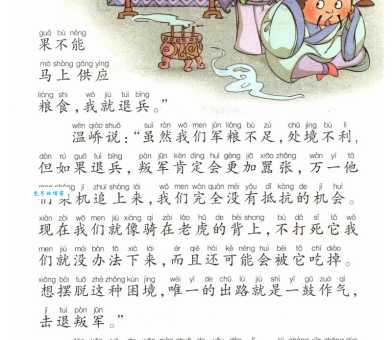 guǒ bù néng
果不能
mǎ shàng gōng yìng
马上供应
liáng shi wǒ jiù tuì bīng
粮食，我就退兵。”
wēn qiáo shuō suī rán wǒ men jūn liáng bù zú chǔ jìng bú lì
温峤说：“虽然我们军粮不足，处境不利，
dàn rú guǒ tuì bīng pàn jūn kěn dìng huì gèng jiā xiāo zhāng wàn yī tā
但如果退兵，叛军肯定会更加嚣张，万一他
men chéng jī zhuī shàng lái wǒ men wán quán méi yǒu dǐ kàng de jī huì
们乘机追上来，我们完全没有抵抗的机会。
xiàn zài wǒ men jiù xiàng qí zài lǎo hǔ de bèi shang bù dǎ sǐ tā wǒ
现在我们就像骑在老虎的背上，不打死它我
men jiù méi bàn fǎ xià lái ér qiě hái kě néng huì bèi tā chī diào
们就没办法下来，而且还可能会被它吃掉。
xiǎng bǎi tuō zhè zhǒng kùn jìng wéi yī de chū lù jiù shì yì gǔ zuò qì
想摆脱这种困境，唯一的出路就是一鼓作气，
jī tuì pàn jūn
击退叛军。”